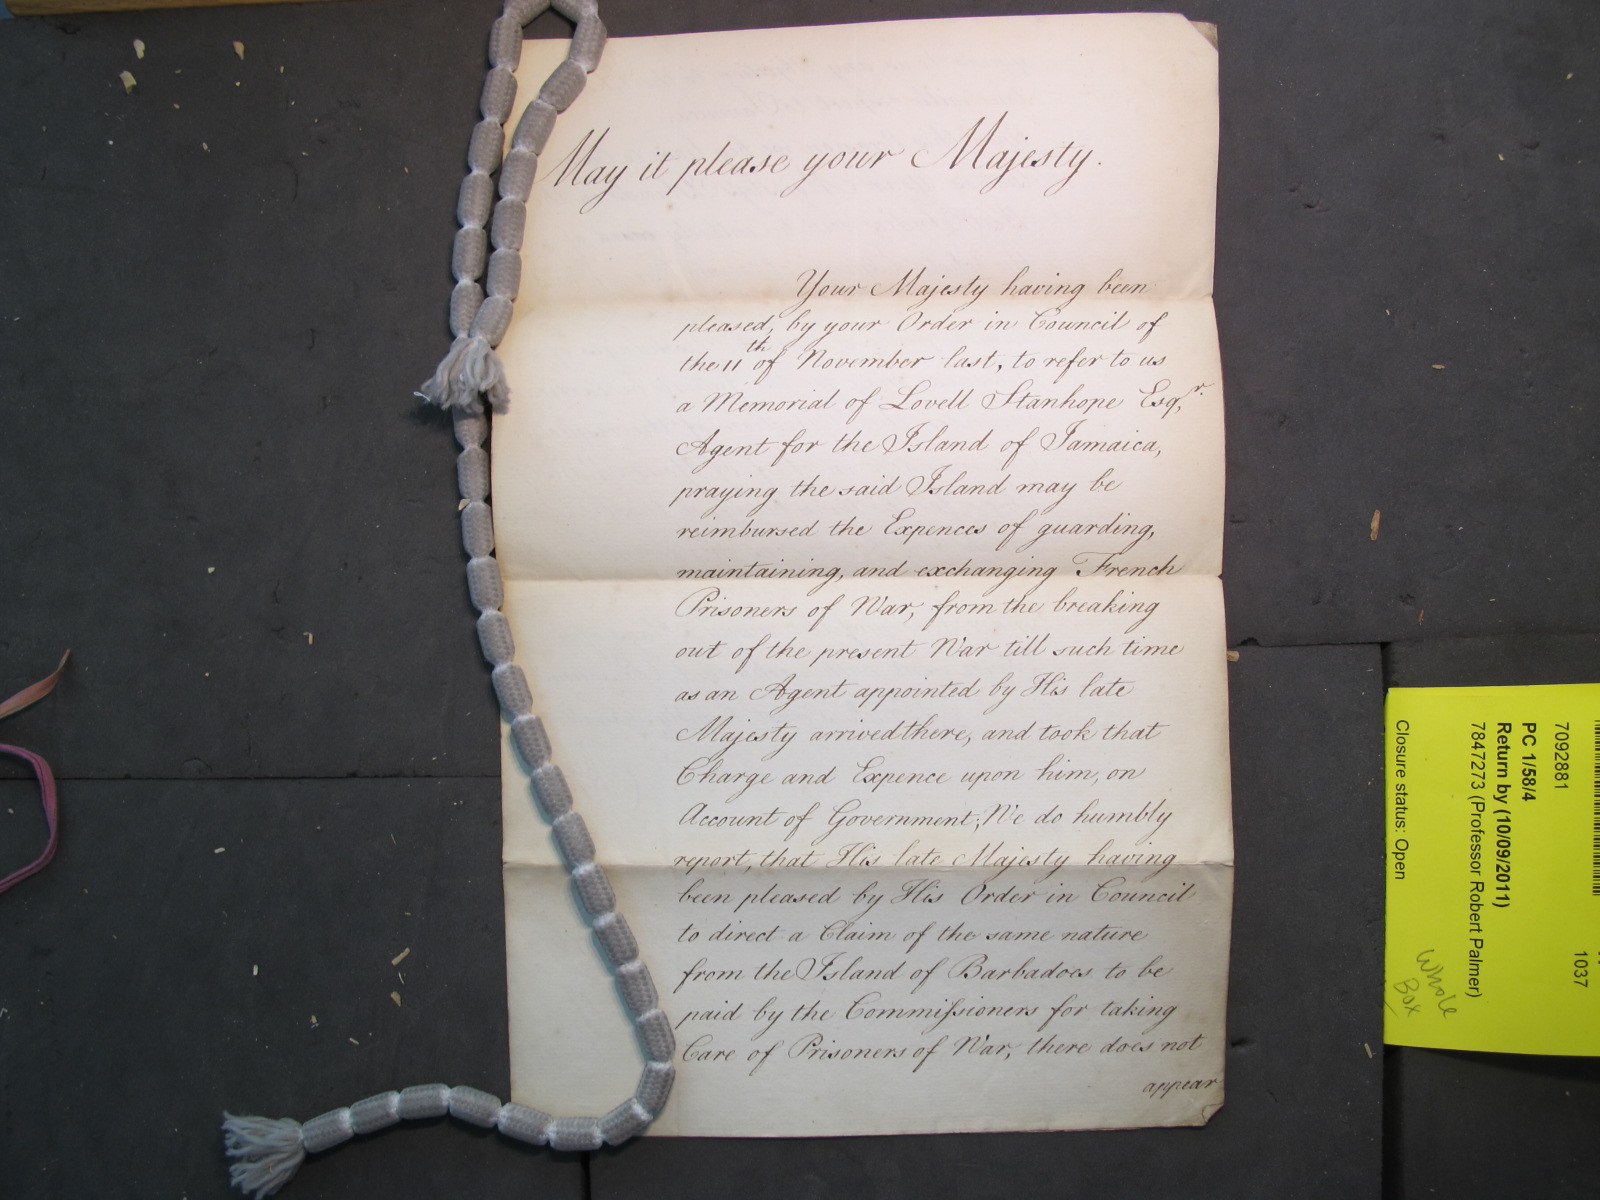 May it please your Majesty.
Your Majesty having been
pleased, by your Order in Council of
the 11th of November last, to refer to us
a Memorial of Lovell Stanhope Esqr.
Agent for the Island of Jamaica,
praying the said Island may be
reimbursed the Expences of guarding,
maintaining, and exchanging French
Prisoners of War, from the breaking
out of the present War till such time
as an Agent appointed by His late
Majesty arrived there, and took that
Charge and Expence upon him, on
Account of Government; We do humbly
report, that His late Majesty having
been pleased by His Order in Council
to direct a Claim of the same nature
from the Island of Barbadoes to be
paid by the Commissioners for taking
Care of Prisoners of War, there does not
appear
1037
7092881
PC 1/58/4
Return by (10/09/2011)
7847273 (Professor Robert Palmer)
Closure status: Open
Whole
Box